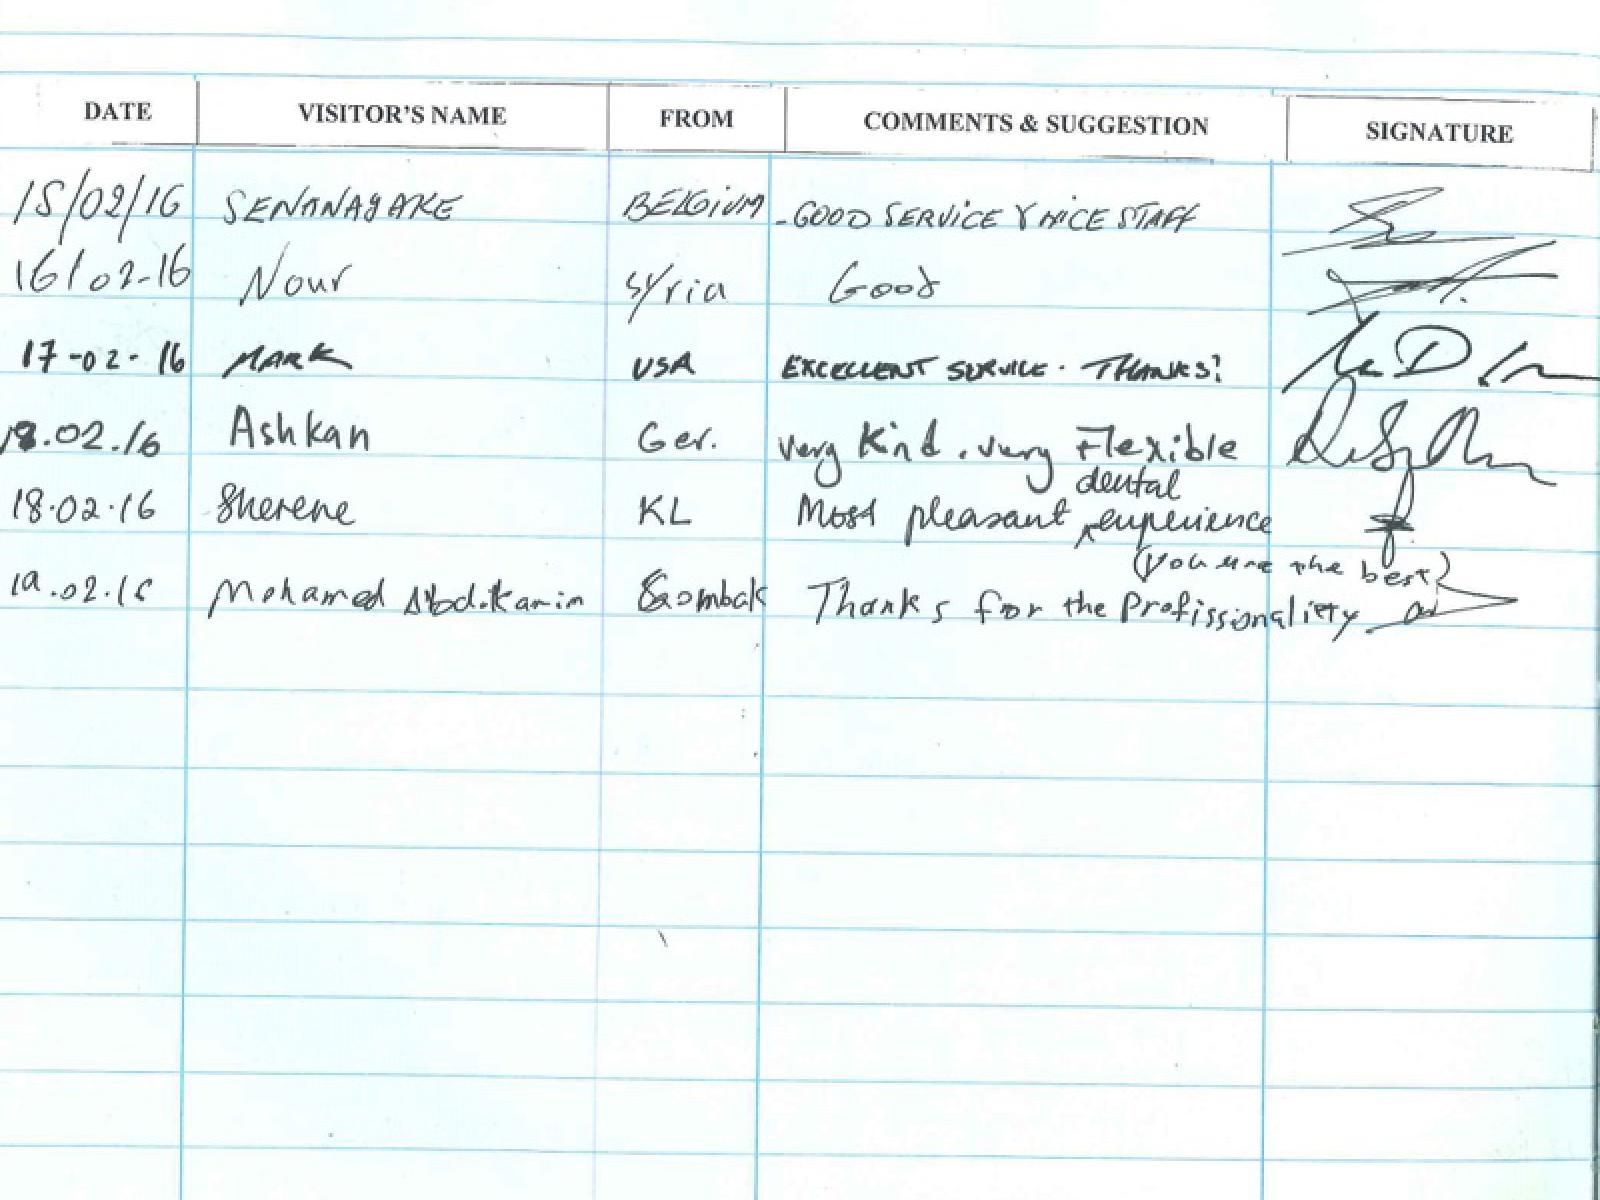 DATE VISITOR'S NAME FROM COMMENTS & SUGGESTION SIGNATURE
15/02/16 SENANAYAKE BELGIUM - GOOD SERVICE Y NICE STAFF
16/02-16 Nour Syria Good
17-02-16 MARK USA EXCELLENT SERVICE. THANKS!
18.02.16 Ashkan Ger. very Kind. very Flexible
dental
18.02.16 Sherene KL Most pleasant experience
(you are the best)
19.02.16 Mohamed Abdikarim Gombak Thanks for the Profissionaliety